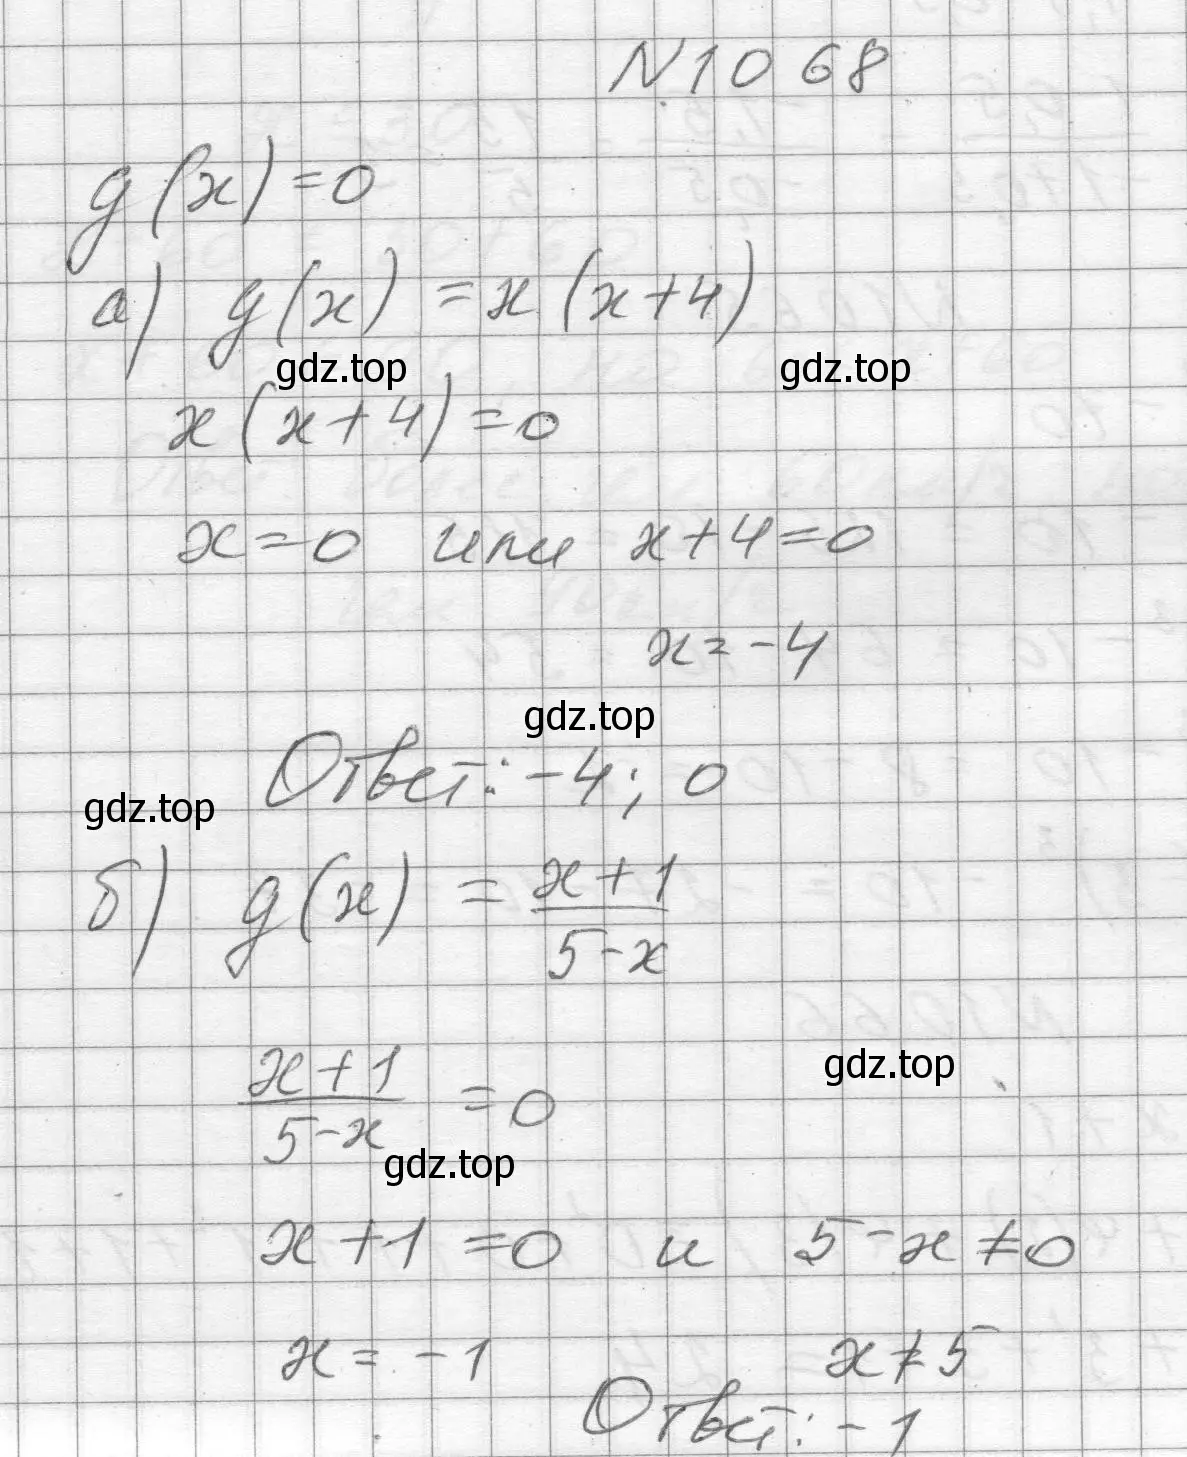 N 1068
g(x)=0
а) g(x) = x(x+4)
gdz.top gdz.top
x(x+4)=0
x=0 или x+4=0
x=-4
gdz.top
Ответ: -4; 0
gdz.top
б) g(x) = \frac{x+1}{5-x}
\frac{x+1}{5-x} = 0
gdz.top
gdz.top
x+1=0 и 5-x≠0
x=-1 x≠5
Ответ: -1